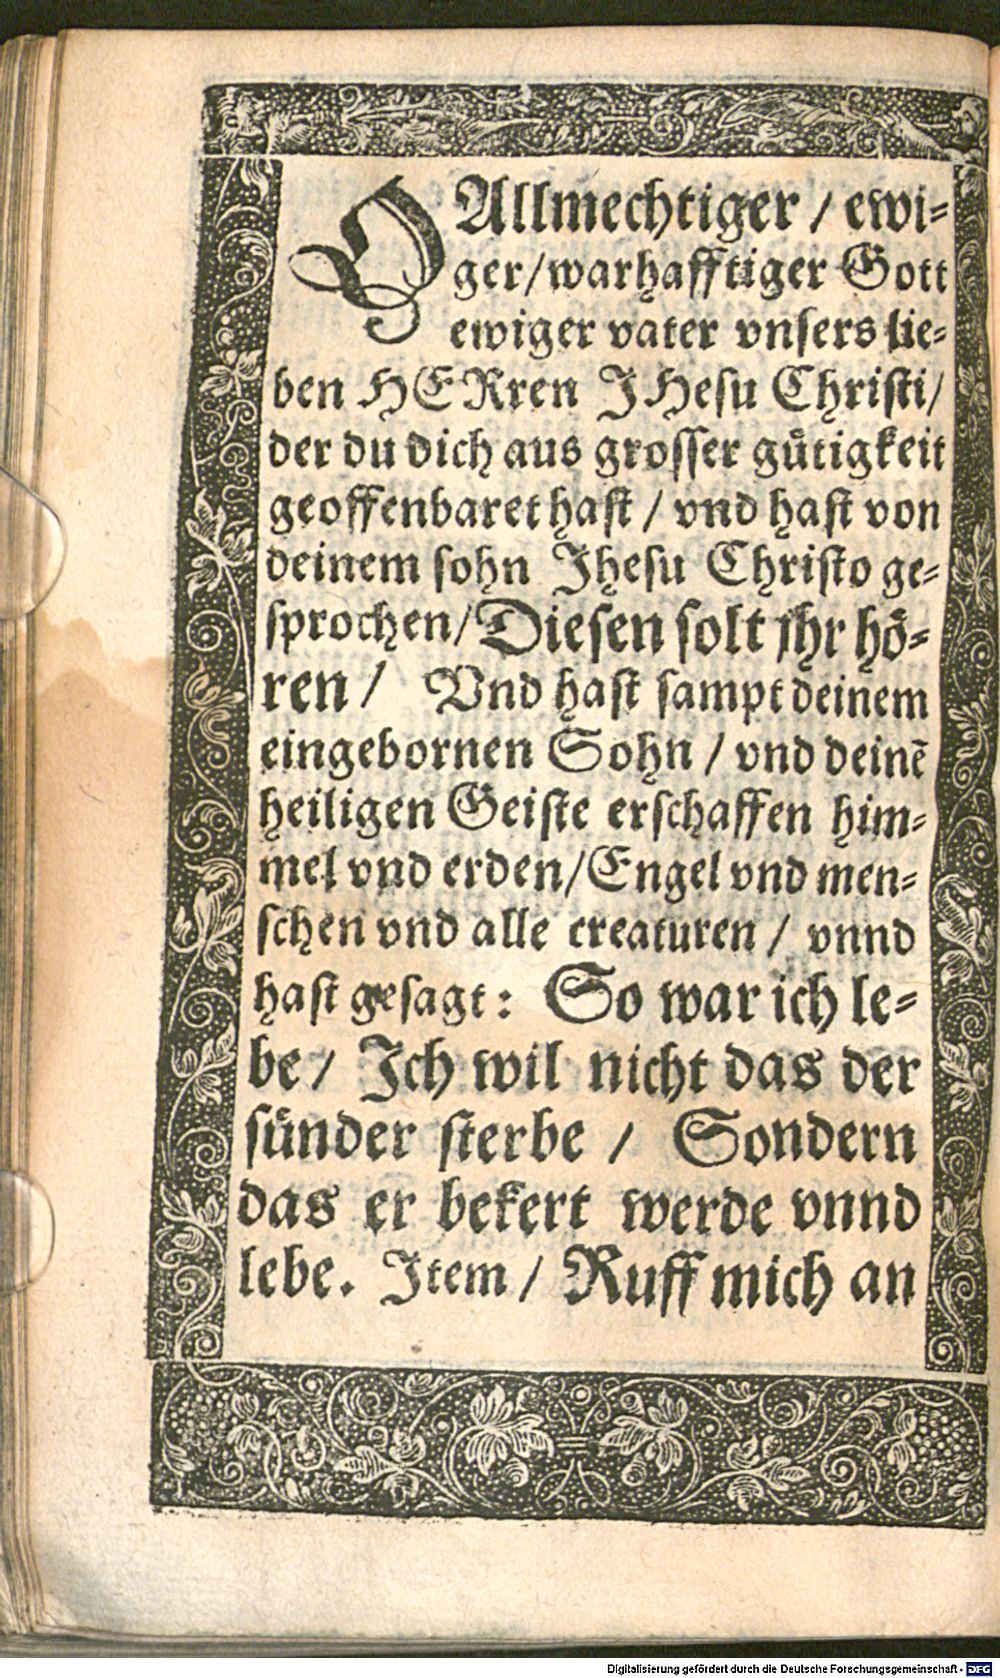 O Allmechtiger / ewi⸗
ger/warhafftiger Gott
ewiger vater vnsers lie⸗
ben HERren JHesu Christi/
der du dich aus grosser gütigkeit
geoffenbaret hast / vnd hast von
deinem sohn Jhesu Christo ge⸗
sprochen/Diesen solt jhr hö⸗
ren / Vnd hast sampt deinem
eingebornen Sohn / vnd deinē
heiligen Geiste erschaffen him⸗
mel vnd erden/Engel vnd men⸗
schen vnd alle creaturen / vnnd
hast gesagt: So war ich le⸗
be / Ich wil nicht das der
sünder sterbe / Sondern
das er bekert werde vnnd
lebe. Item / Ruff mich an
Digitalisierung gefördert durch die Deutsche Forschungsgemeinschaft - DFG